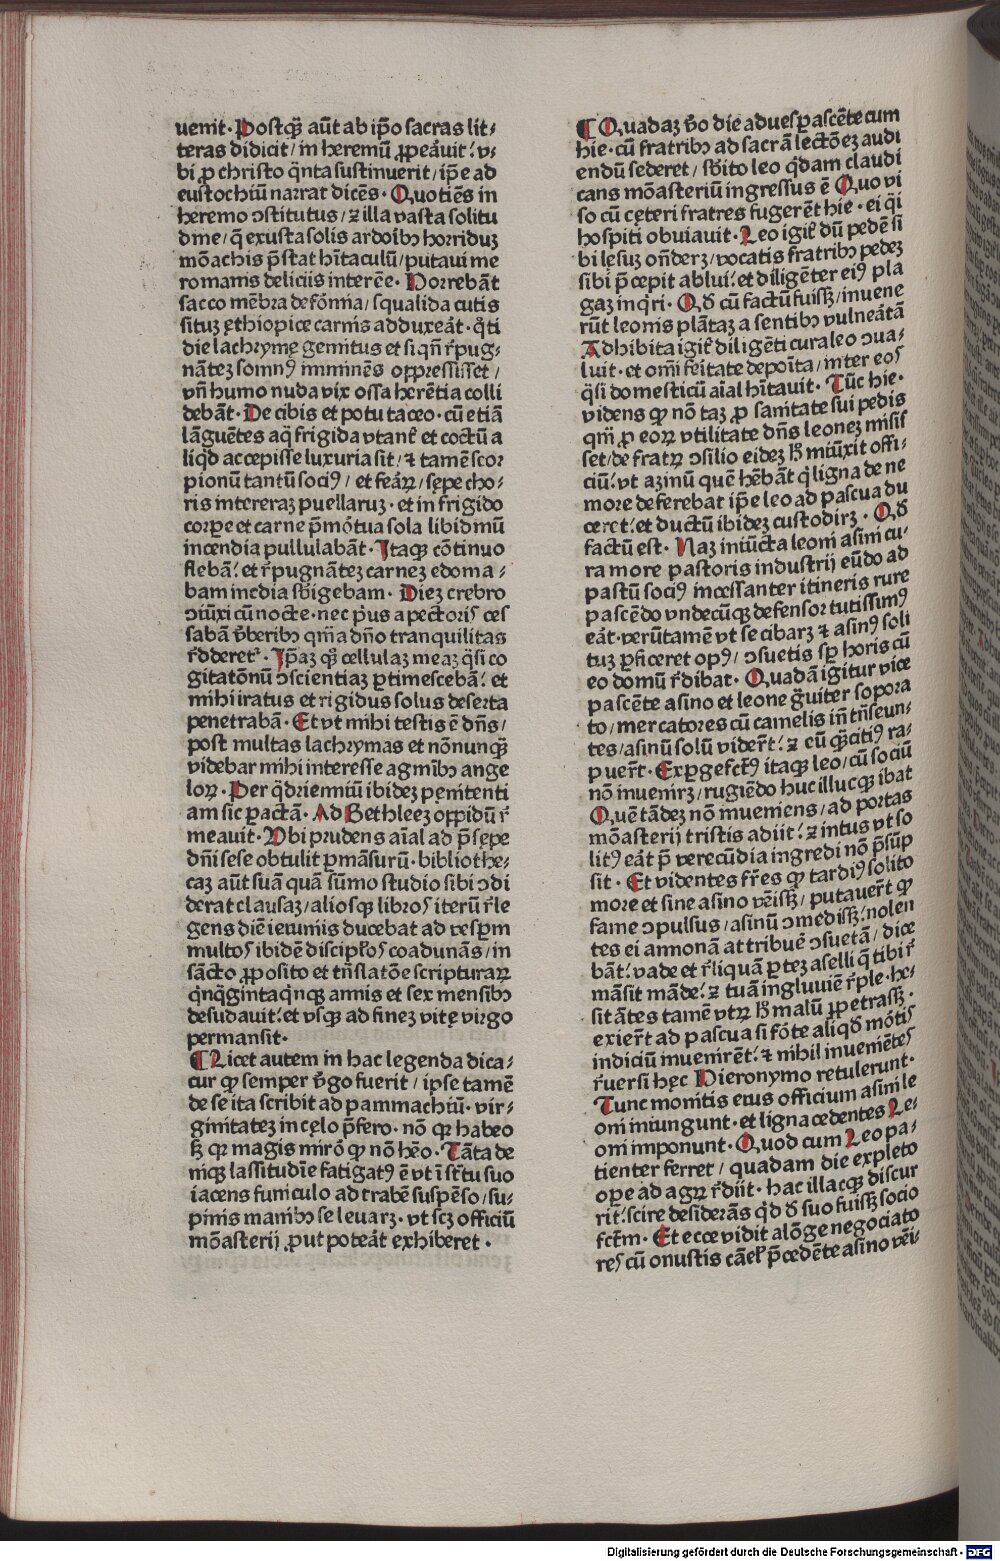 uenit. Postq̃ aūt ab ip̄o sacras lit⸗
teras didicit / in heremū ꝓpeāuit: v⸗
bi ꝓ christo q̄nta sustinuerit / ip̄e ad
eustochiū narrat dicēs. Quotiēs in
heremo ↄstitutus / ⁊ illa vasta solitu
dīne / q̄ exusta solis ardoībꝫ horriduꝫ
mōachis p̄stat hītaculū / putaui me
romanis deliciis interēe. Horrebāt
sacco mēbra defōrmia / squalida cutis
situꝫ ęthiopice carnis adduxeāt. q̊ti
die lachrymę gemitus et si qn̄ r̄pug⸗
nāteꝫ somnꝰ imminēs oppressisset /
vn̄ humo nuda vix ossa herētia colli
debāt. De cibis et potu taceo. cū etiā
lāguētes aq̄ frigida vtant᷑ et coctū a
liqd̄ accepisse luxuria sit / ⁊ tamē scor
pionū tantū sociꝰ / et feāꝝ / sępe cho⸗
ris intereraꝫ puellaruꝫ. et in frigido
corpe et carne p̄mōtua sola libidinū
incendia pullulabāt. Itaqꝫ cōtinuo
flebā: et r̄pugnāteꝫ carneꝫ edoma⸗
bam inedia sb̄igebam. Dieꝫ crebro
ↄiūxi cū nocte. nec pͥus a pectoris ces
sabā v̄beribꝫ qm̄ a dn̄o tranquilitas
r̄dderet᷑. Ip̄aꝫ qꝫ cellulaꝫ meaꝫ q̄si co
gitatōnū ↄscientiaꝫ ꝑtimescebā: et
mihi iratus et rigidus solus deserta
penetrabā. Et vt mihi testis ē dn̄s /
post multas lachrymas et nōnunq̄
videbar mihi interesse agmībꝫ ange
loꝝ. Per q̄drienniū ibideꝫ pęnitenti
am sic ꝑactā. Ad Bethleeꝫ oppidū r̄
meauit. Vbi prudens aīal ad p̄sępe
dn̄i sese obtulit ꝑmāsurū. bibliothe⸗
caꝫ aūt suā quā sūmo studio sibi ↄdi
derat clausaꝫ / aliosqꝫ libros iterū r̄le
gens diē ieiunus ducebat ad vesꝑm
multos ibidē discipłos coadunās / in
sācto ꝓposito et trn̄slatōe scripturaꝝ
qͥnq̄ginta qͥnqꝫ annis et sex mensibꝫ
desudauit: et vsqꝫ ad fineꝫ vitę virgo
permansit.
¶ Licet autem in hac legenda dica⸗
tur ꝙ semper v̄go fuerit / ipse tamē
de se ita scribit ad pammachiū. vir⸗
ginitateꝫ in cęlo p̄fero. nō ꝙ habeo
sꝫ ꝙ magis mirōr ꝙ nō hēo. Tāta de
niqꝫ lassitudīe fatigatꝰ ē vt ī st̄tu suo
iacens funiculo ad trabē suspēso / su⸗
pinis manibꝫ se leuarꝫ. vt scꝫ officiū
mōasterij ꝓut poteāt exhiberet.
¶ Quadaꝫ v̄o die aduesꝑascēte cum
hie. cū fratribꝫ ad sacrā lectōeꝫ audi
endū sederet / sb̄ito leo qͥdam claudi
cans mōasteriū ingressus ē Quo vi
so cū ceteri fratres fugerēt hie. ei q̄si
hospiti obuiauit. Leo igit᷑ dū pedē si
bi lęsuꝫ on̄derꝫ / vocatis fratribꝫ pedeꝫ
sibi p̄cepit ablui: et diligēter eiꝰ pla
gaꝫ inqͥri. Qd̄ cū factū fuissꝫ / inuene
rūt leonis plātaꝫ a sentibꝫ vulneātā
Adhibita igit᷑ diligēti cura leo ↄua⸗
luit. et om̄i feītate depoīta / inter eos
q̄si domesticū aīal hītauit. Tūc hie.
videns ꝙ nō taꝫ ꝓ sanitate sui pedis
qm̄ ꝓ eoꝝ vtilitate dn̄s leoneꝫ misis
set / de fratꝝ ↄsilio eideꝫ hͦ iniūxit offi⸗
ciū: vt aꝫinū quē hēbāt qͥ ligna de ne
more deferebat ip̄e leo ad pascua du
ceret: et ductū ibideꝫ custodirꝫ. Qd̄
factū est. Naꝫ iniūcta leoni asini cu⸗
ra more pastoris industrij eūdo ad
pastū sociꝰ incessanter itineris rure
pascēdo vndecūqꝫ defensor tutissimꝰ
eāt. verūtamē vt se cibarꝫ ⁊ asinꝰ soli
tuꝫ ꝑficeret opꝰ / ↄsuetis sꝑ horis cū
eo domū r̄dibat. Quadā igitur vice
pascēte asino et leone g̈uiter sopora
to / mercatores cū camelis in̄ trn̄seun⸗
tes / asinū solū viderūt: ⁊ eū q̄citiꝰ ra⸗
puer̄t. Exꝑgefct᷑ꝰ itaqꝫ leo / cū sociū
nō inuenirꝫ / rugiēdo huc illucqꝫ ibat
Quē tādeꝫ nō inueniens / ad portas
mōasterij tristis adiit: ⁊ intus vt so
litꝰ eāt p̄ verecūdia ingredi nō p̄sūp
sit. Et videntes fr̄es ꝙ tardiꝰ solito
more et sine asino vēissꝫ / putauer̄t ꝙ
fame ↄpulsus / asinū ↄmedissꝫ. nolen
tes ei annonā attribuē ↄsuetā / dice
bāt: vade et r̄liquā ꝑteꝫ aselli q̄ tibi r̄
māsit māde: ⁊ tuā ingluuiē r̄ple. he⸗
sitātes tamē vtꝝ hͦ malū ꝑpetrassꝫ.
exier̄t ad pascua si fōte aliqd̄ mōtis
indiciū inuenirēt: ⁊ nihil inueniētes
r̄uersi hęc Hieronymo retulerunt.
Tunc monitis eius officium asini le
oni iniungunt. et ligna cedentes Le⸗
oni imponunt. Quod cum Leo pa⸗
tienter ferret / quadam die expleto
oꝑe ad agꝝ r̄diit. hac illacqꝫ discur
rit: scire desiderās qͥd d̄ suo fuissꝫ socio
fctm̄. Et ecce vidit a lōge negociato
res cū onustis cāeł p̄cedēte asino vēi⸗
Digitalisierung gefördert durch die Deutsche Forschungsgemeinschaft - DFG